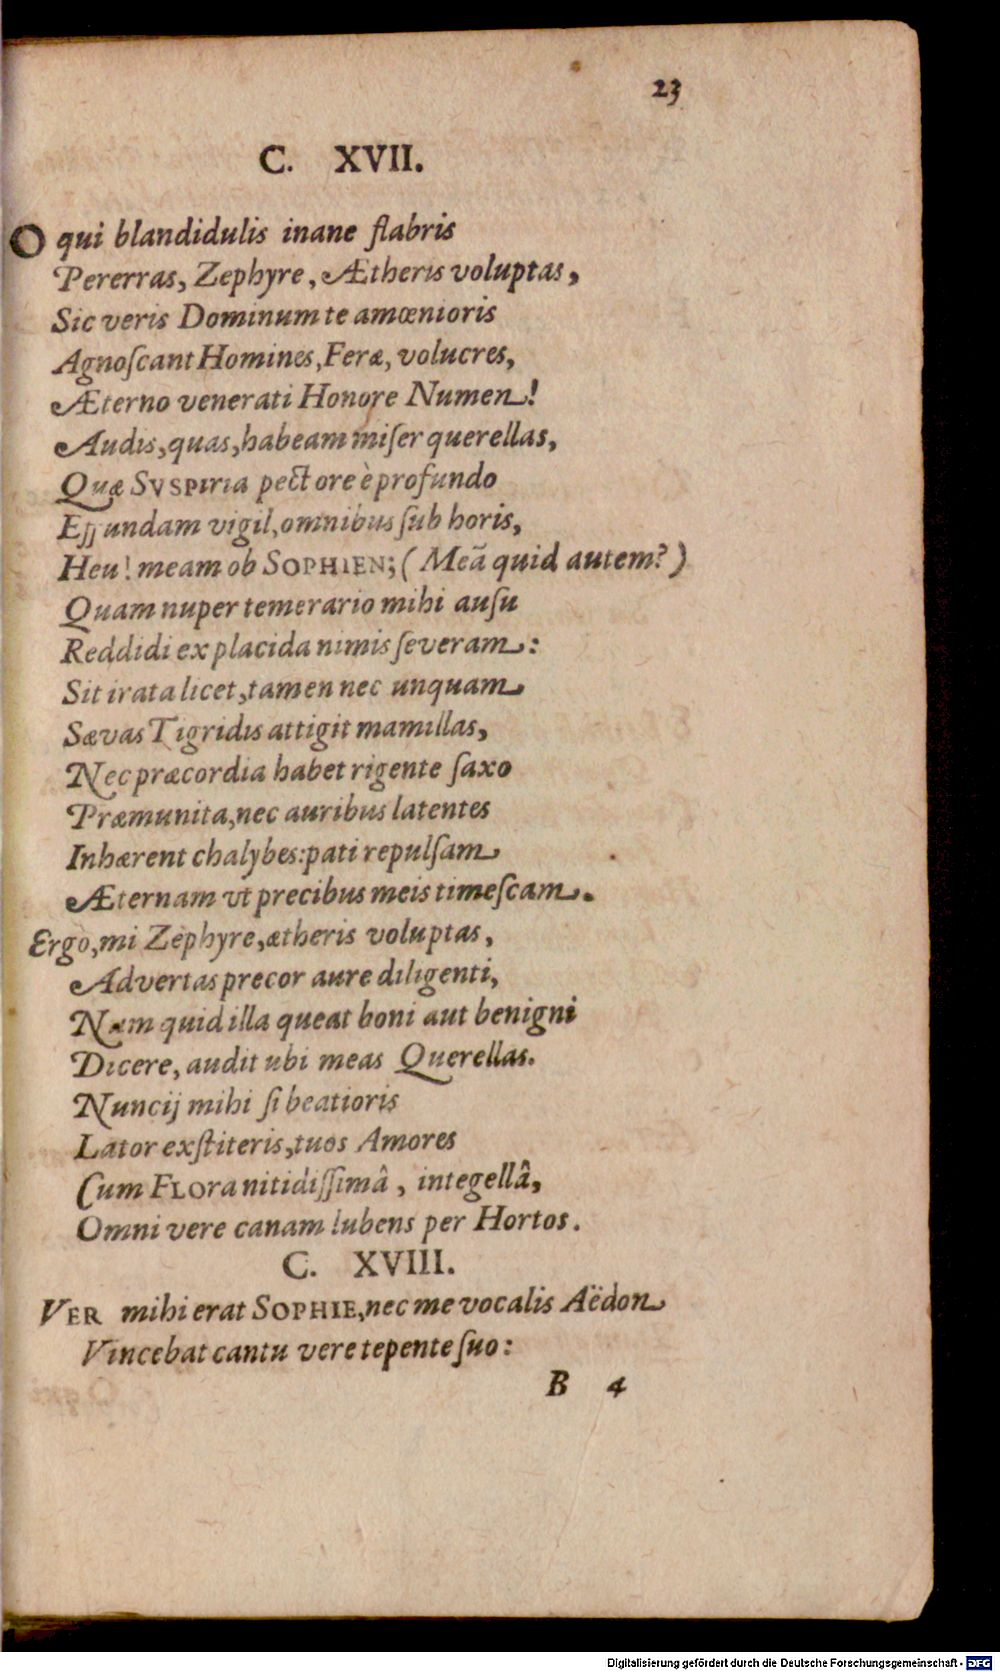 23
C. XVII.
O qui blandidulis inane flabris
Pererras, Zephyre, Ætheris voluptas,
Sic veris Dominum te amœnioris
Agnoſcant Homines, Feræ, volucres,
Æterno venerati Honore Numen!
Audis, quas, habeam miſer querellas,
Quæ SVSPIRIA pectore è profundo
Effundam vigil, omnibus ſub horis,
Heu! meam ob SOPHIEN; ( Meã quid autem? )
Quam nuper temerario mihi auſu
Reddidi ex placida nimis ſeveram:
Sit irata licet, tamen nec unquam
Sævas Tigridis attigit mamillas,
Nec præcordia habet rigente ſaxo
Præmunita, nec auribus latentes
Inhærent chalybes: pati repulſam
Æternam vt precibus meis timeſcam.
Ergò, mi Zephyre, ætheris voluptas,
Advertas precor aure diligenti,
Num quid illa queat boni aut benigni
Dicere, audit ubi meas Querellas.
Nuncij mihi ſi beatioris
Lator exſtiteris, tuos Amores
Cum FLORA nitidiſſimâ, integellâ,
Omni vere canam lubens per Hortos.
C. XVIII.
VER mihi erat SOPHIE, nec me vocalis Aëdon
Vincebat cantu vere tepente ſuo:
B 4
Digitalisierung gefördert durch die Deutsche Forschungsgemeinschaft - DFG